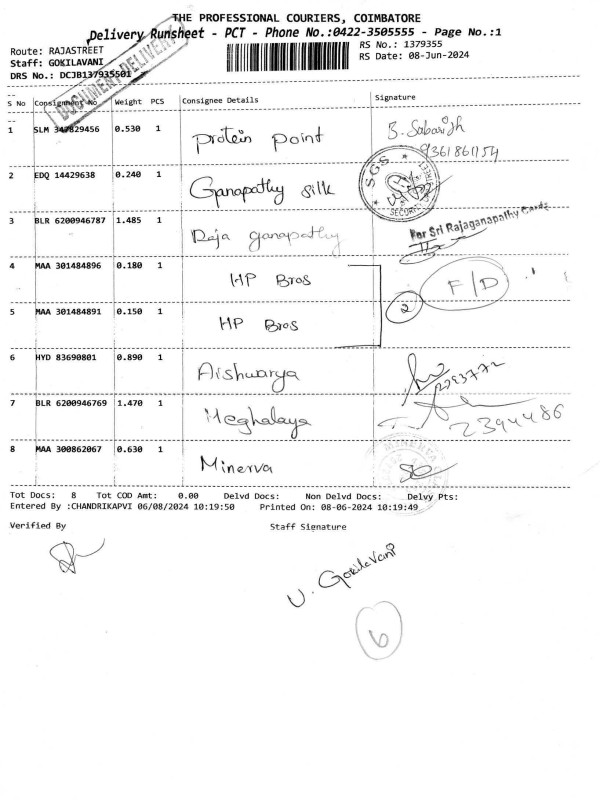 THE PROFESSIONAL COURIERS, COIMBATORE
Delivery Runsheet - PCT - Phone No.:0422-3505555 - Page No.:1
Route: RAJASTREET
RS No.: 1379355
Staff: GOKILAVANI
RS Date: 08-Jun-2024
DRS No.: DCJB137935501
DOCUMENT DELIVERY
S No Consignment No Weight PCS Consignee Details Signature
1 SLM 347829456 0.530 1 Protein Point B. Sabarish
9361861154
2 EDQ 14429638 0.240 1 Ganapathy silk
SGS
SECURITY
3 BLR 6200946787 1.485 1 Raja ganapathy For Sri Rajaganapathy Cards
4 MAA 301484896 0.180 1 HP Bros F/D
5 MAA 301484891 0.150 1 HP Bros 2
6 HYD 83690801 0.890 1 Aishwarya
7 BLR 6200946769 1.470 1 Meghalaya 2394486
8 MAA 300862067 0.630 1 Minerva
MINERVA
Tot Docs: 8 Tot COD Amt: 0.00 Delvd Docs: Non Delvd Docs: Delvy Pts:
Entered By :CHANDRIKAPVI 06/08/2024 10:19:50 Printed On: 08-06-2024 10:19:49
Verified By Staff Signature
V. Gokilavani
6